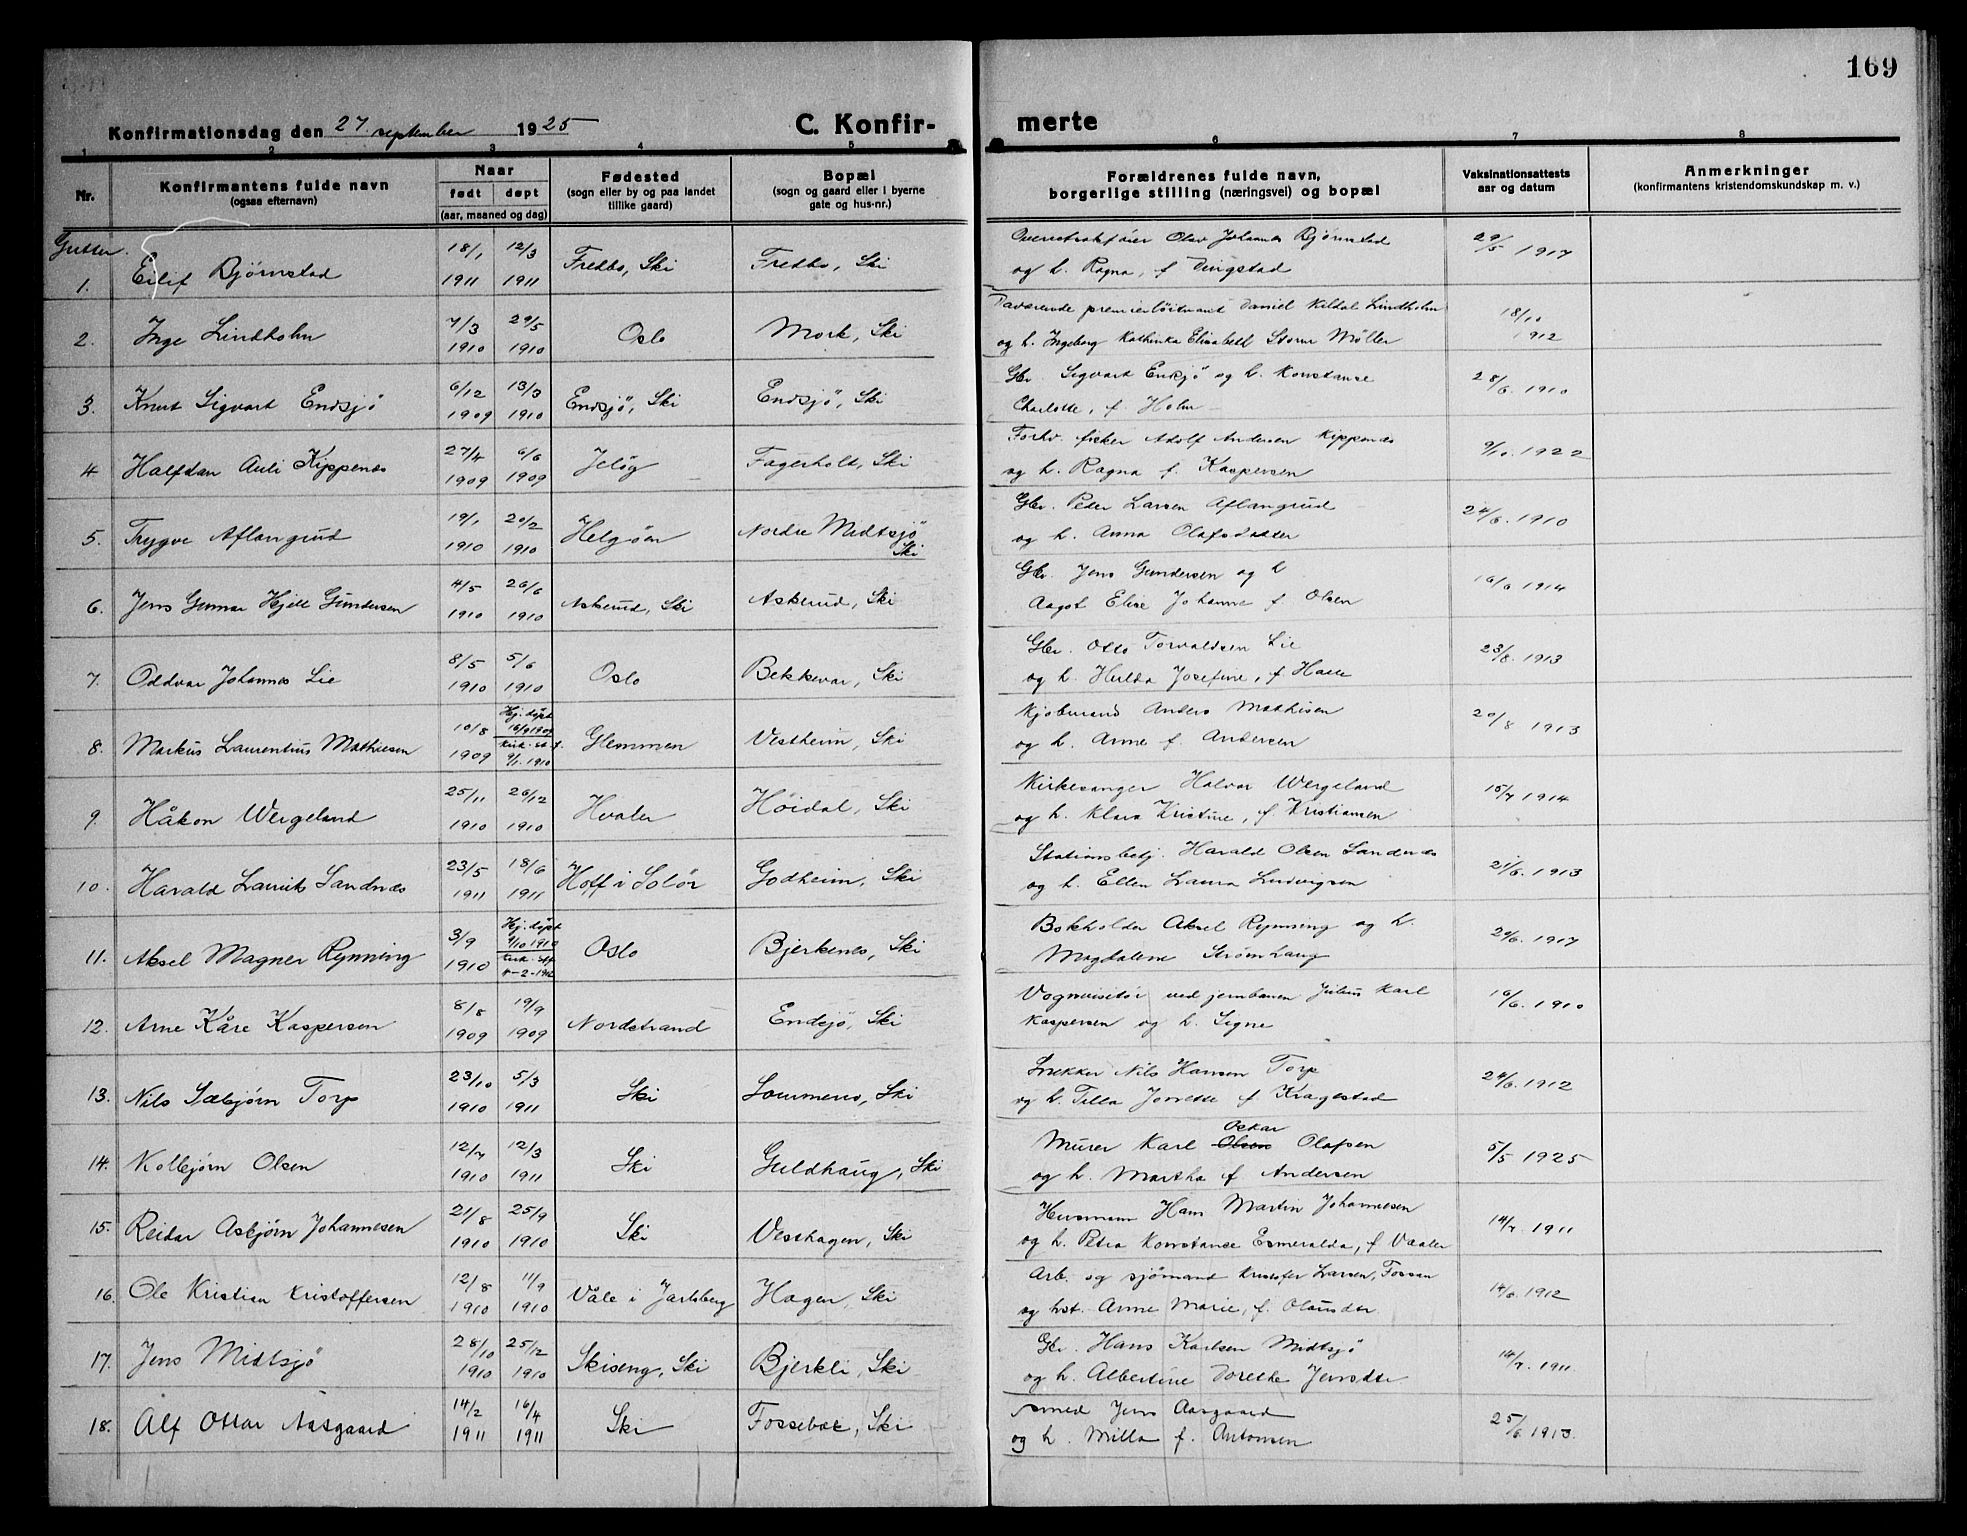 169
Konfirmationsdag den 27. september 1925 C. Konfir- merte
1 2 3 4 5 6 7 8
Nr. Konfirmantens fulde navn (ogsaa efternavn) Naar født døpt (aar, maaned og dag) Fødested (sogn eller by og paa landet tillike gaard) Bopæl (sogn og gaard eller i byerne gate og hus-nr.) Forældrenes fulde navn, borgerlige stilling (næringsvei) og bopæl Vaksinationsattests aar og datum Anmerkninger (konfirmantens kristendomskundskap m. v.)
Gutter.
1. Eilif Bjørnstad 18/1 1911 12/3 1911 Fredbo, Ski Fredbo, Ski Olav Johannes Bjørnstad
og h. Ragna, f. Dingstad 29/5 1917
2. Inge Lindholm 7/3 1910 29/5 1910 Oslo Mork, Ski Daværende premierløitnant Daniel Kildal Lindholm
og h. Ingeborg Kathinka Elisabeth Storm Møller 18/10 1912
3. Knut Sigvart Endsjö 6/12 1909 13/3 1910 Endsjö, Ski Endsjö, Ski Gbr. Sigvart Ensjö og h. Konstanse
Charlotte, f. Holm 28/6 1910
4. Halfdan Auli Kippenes 27/4 1909 6/6 1909 Jeløy Fagerholt, Ski Forhv. fisker Adolf Andersen Kippenes
og h. Ragna f. Kaspersen 9/10. 1922
5. Trygve Aflangrud 19/1 1910 20/2 1910 Helgøen Nordre Midtsjö Ski Gbr. Peder Larsen Aflangrud
og h. Anna Olafsdatter 24/6. 1910
6. Jens Gunnar Hjell Gundersen 4/5 1910 26/6 1910 Askerud, Ski Askerud, Ski Gbr. Jens Gundersen og h
Aagot Elise Johanne f. Olsen 16/6 1914
7. Oddvar Johannes Lie 8/5 1910 5/6 1910 Oslo Bekkevar, Ski Gbr. Otto Torvaldsen Lie
og h. Hulda Josefine, f. 23/8. 1913
8. Markus Laurentius Mathiesen 10/8 1909 Hj. døpt 16/9 1909 Kirk. st. f. 9/1. 1910 Glemmen Vestheim, Ski Kjøbmand Anders Mathisen
og h. Anne f Andersen 20/8 1913
9. Håkon Wergeland 25/11 1910 26/12 1910 Hvaler Høidal, Ski Kirkesanger Halvor Wergeland
og h. Klara Kristine, f. Kristiansen 15/7 1914
10. Harald Laurits Sandnes 23/5 1911 18/6 1911 Hoff i Solør Godheim, Ski Stationsbetj. Harald Olsen Sandnes
og h. Ellen Laura Ludvigsen 21/6. 1913
11. Aksel Magner Rynning 3/9 1910 Hj. døpt 9/10 1910 Kirk. st. Oslo Bjerkenes, Ski Bokholder Aksel Rynning og h.
Magdalene Strømhaug 29/6. 1917
12. Arne Kåre Kaspersen 8/8 1909 19/9 1909 Nordstrand Endsjö, Ski Vognvisitør ved jernbanen Julius Karl
Kaspersen og h. Signe 16/6. 1910
13. Nils Sæbjørn Torp 23/10 1910 5/3 1911 Ski Sommero, Ski Snekker Nils Hansen Torp
og h. Tilla Jonette f Kragestad 24/6. 1912
14. Kolbjørn Olsen 12/7 1910 12/3 1911 Ski Guldhaug, Ski Murer Karl Olsen Oskar Olafsen
og h. Martha f Andersen 5/5 1925
15. Reidar Asbjørn Johannesen 21/8 1910 25/9 1910 Ski Vesthagen, Ski Husmann Hans Martin Johannesen
og h. Petra Konstance Esmeralda, f Vaaler 14/7. 1911
16. Ole Kristian Kristoffersen 12/8 1910 11/9 1910 Våle i Jarlsberg Hagen, Ski Arb. og sjömand Kristofer Larsen, Fossan
og hst. Anne Marie, f. Olausdtr. 14/6. 1912
17. Jens Midtsjö 28/10 1910 25/12 1910 Skiseng, Ski Bjerkli, Ski Gbr. Hans Karlsen Midtsjö
og h. Albertine Dorethe Jensdtr. 14/7. 1911.
18. Alf Ottar Aasgaard 14/2 1911 16/4 1911 Ski Fossebæk, Ski Smed Jens Aasgaard
og h. Milla f. Antonsen 25/6 1913.